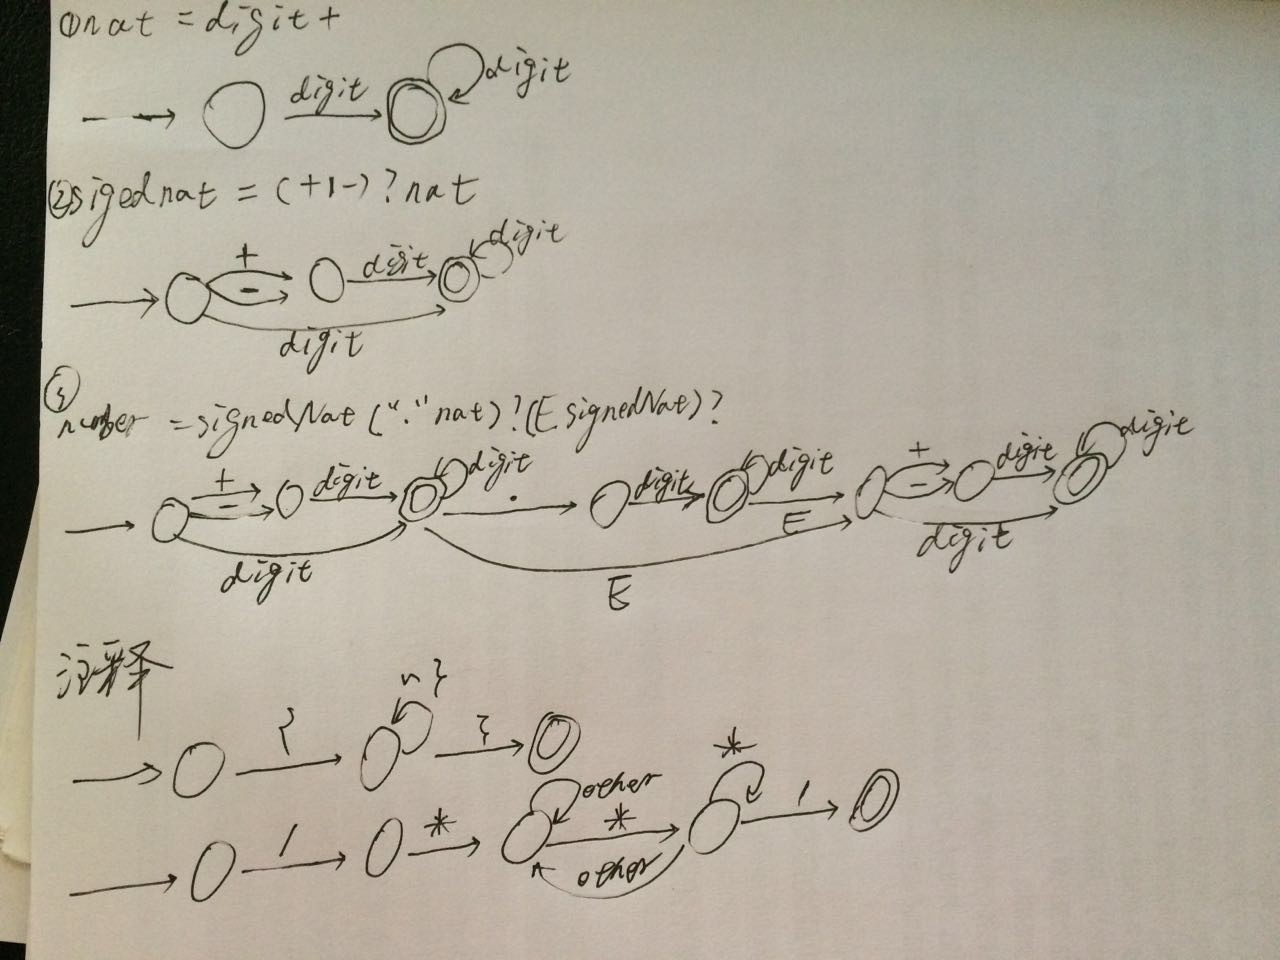 ①nat = digit+
digit digit
②sigednat = (+|-)?nat
+ digit digit
-
digit
③
number = signedNat ("." nat)?(E signedNat)?
+ digit digit . digit digit + digit digit
- E -
digit E digit
注释
{ ~} }
/ * other * * /
other